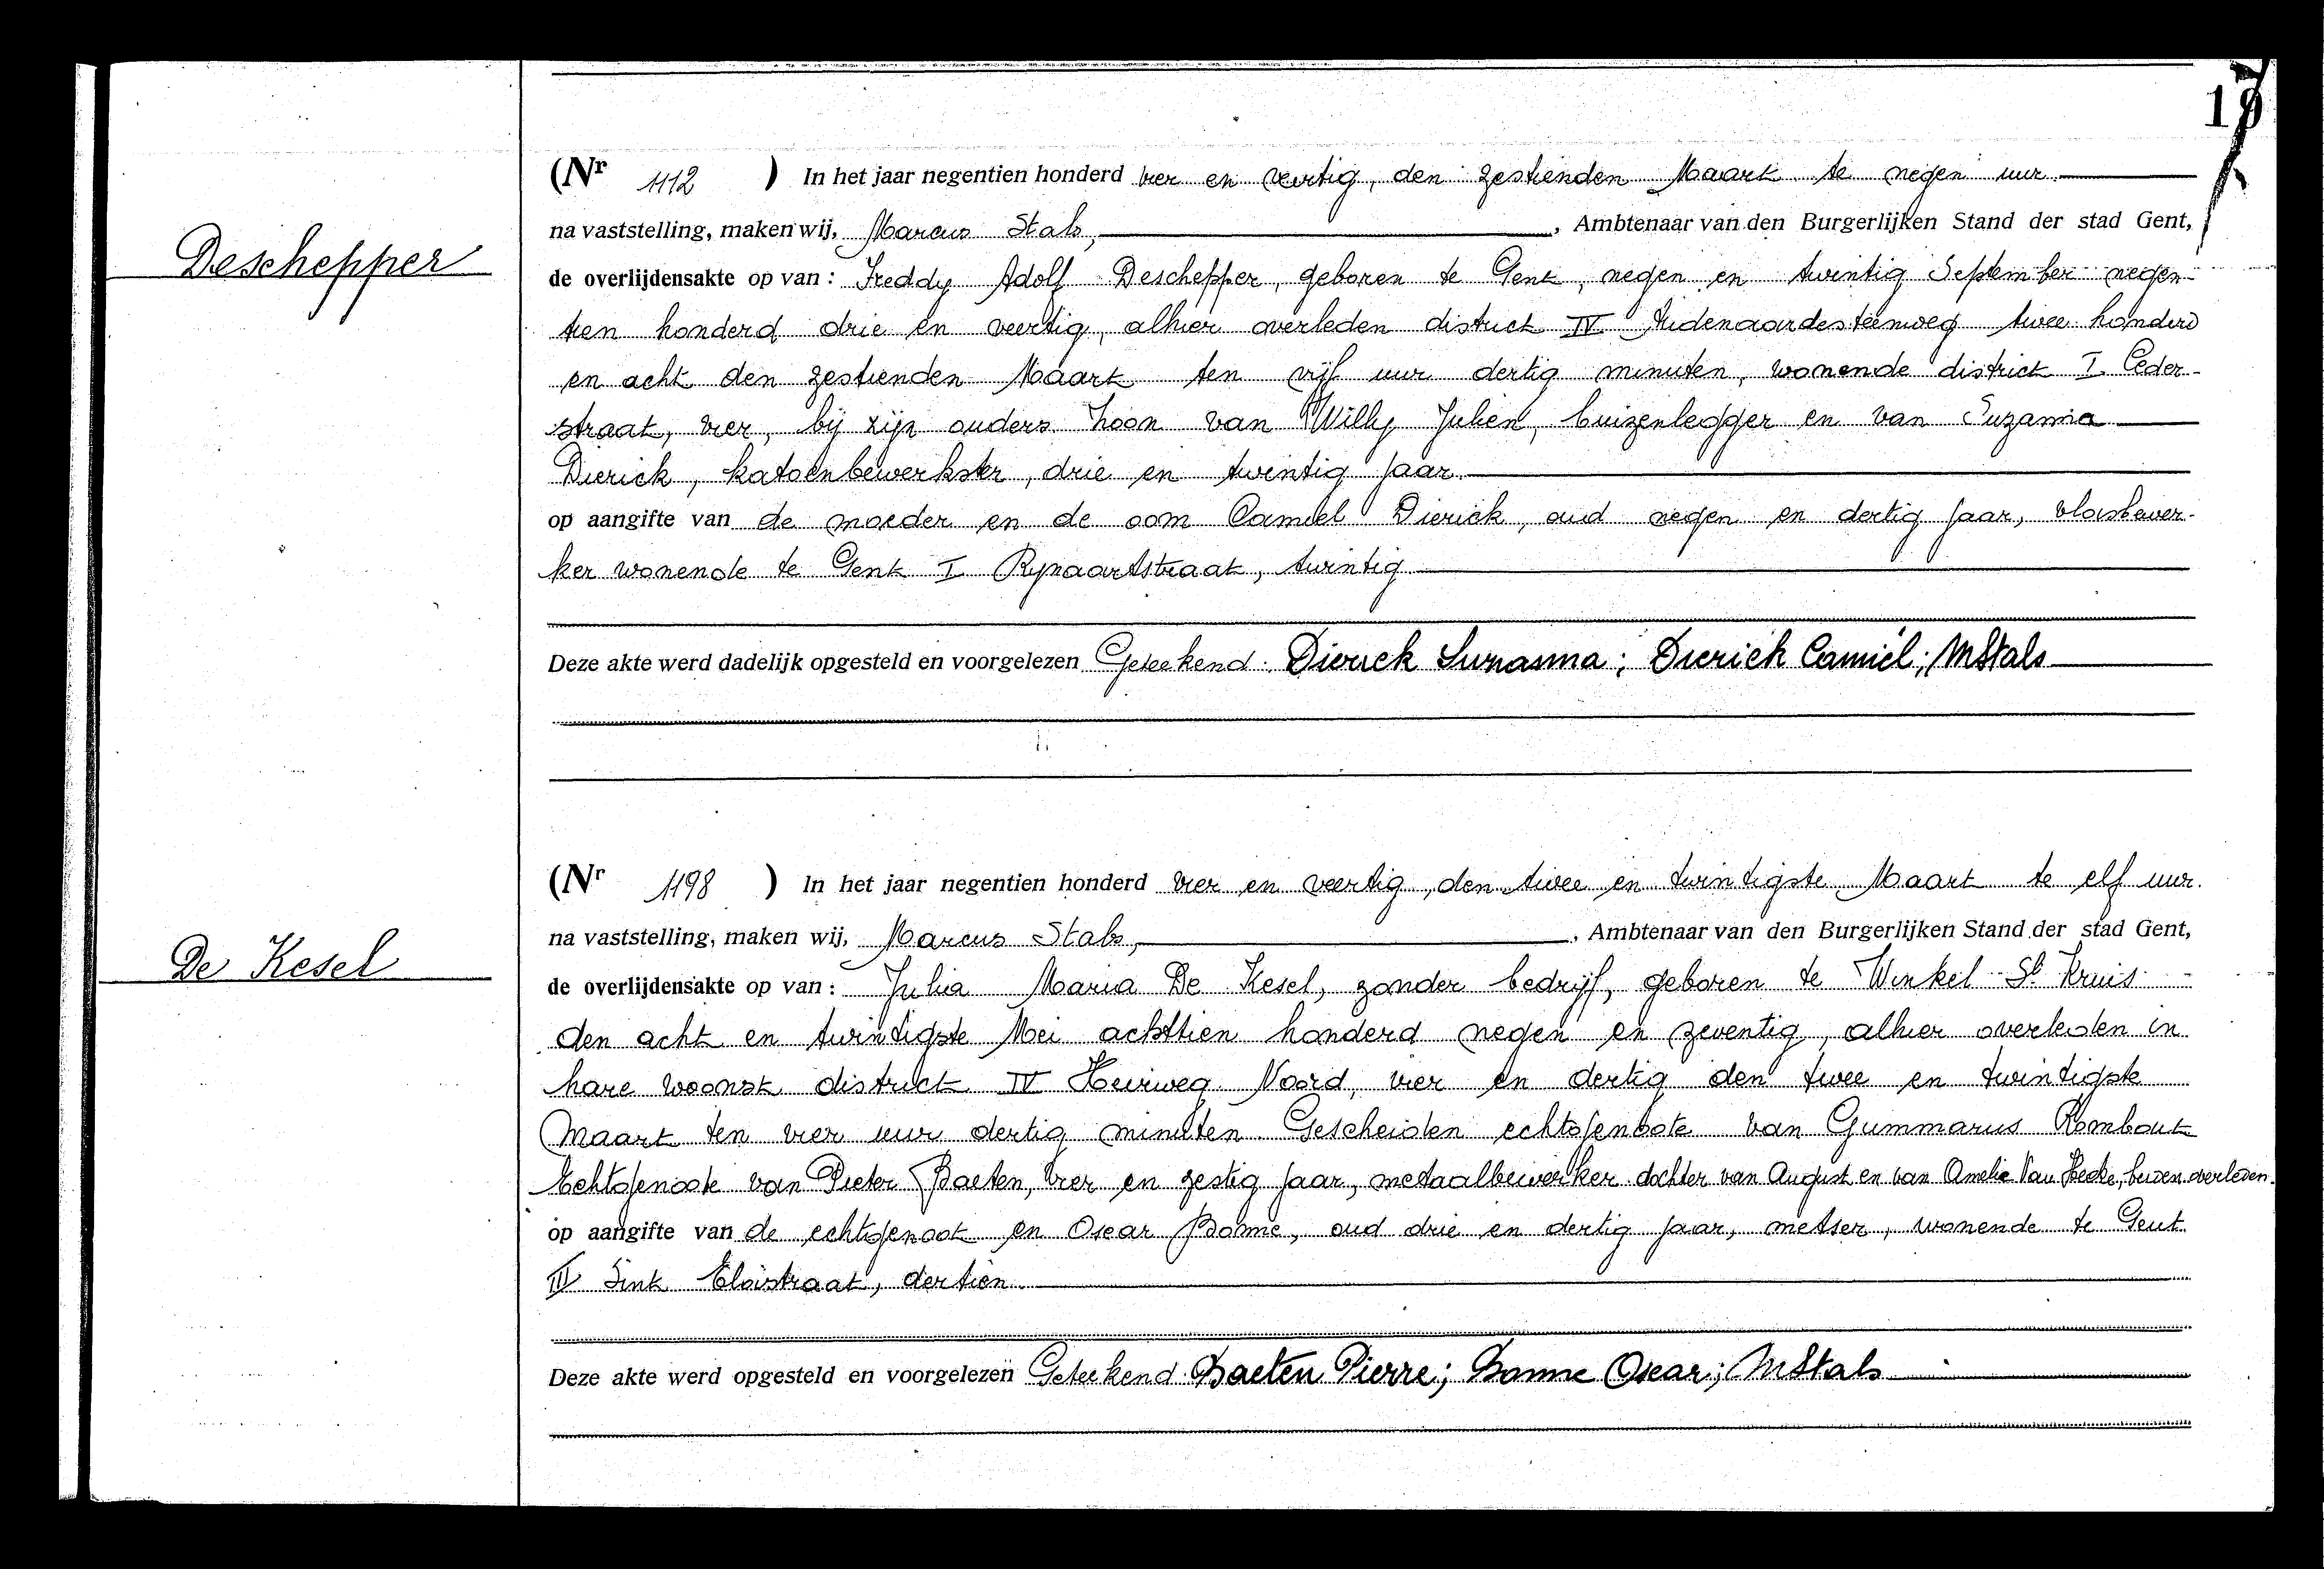 19
(Nr 1112 ) In het jaar negentien honderd vier en veertig, den zestienden Maart te negen uur
na vaststelling, maken wij, Marcus Stals, , Ambtenaar van den Burgerlijken Stand der stad Gent,
Deschepper
de overlijdensakte op van : Freddy Adolf Deschepper, geboren te Gent, negen en twintig September negen-
tien honderd drie en veertig, alhier overleden district IV Oudenaardesteenweg twee honderd
en acht den zestienden Maart ten vijf uur dertig minuten, wonende district I Ceder-
straat, vier, bij zijn ouders Zoon van Willy Julien, buizenlegger en van Suzanna
Dierick, katoenbewerkster, drie en twintig jaar.
op aangifte van de moeder en de oom Camiel Dierick, oud negen en dertig jaar, vlasbewer-
ker wonende te Gent I Rynaartstraat, twintig
Deze akte werd dadelijk opgesteld en voorgelezen Geteekend: Dierick Suzanna; Dierick Camiel; MStals
(Nr 1198 ) In het jaar negentien honderd vier en veertig, den twee en twintigste Maart te elf uur.
na vaststelling, maken wij, Marcus Stals, , Ambtenaar van den Burgerlijken Stand der stad Gent,
De Kesel
de overlijdensakte op van : Julia Maria De Kesel, zonder bedrijf, geboren te Winkel St. Kruis
den acht en twintigste Mei achttien honderd negen en zeventig, alhier overleden in
hare woonst district IV Heirweg Noord, vier en dertig den twee en twintigste
Maart ten vier uur dertig minuten Gescheiden echtgenoote van Gummarus Rombout
Echtgenoote van Pieter Baeten, vier en zestig jaar, metaalbewerker dochter van August en van Amelie Van Hecke, beiden overleden.
op aangifte van de echtgenoot en Oscar Bonne, oud drie en dertig jaar, metser, wonende te Gent
III Sint Eloistraat, dertien
Deze akte werd opgesteld en voorgelezen Geteekend Baeten Pierre; Bonne Oscar; MStals